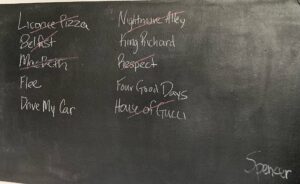 Licorice Pizza
Belfast
Macbeth
Flee
Drive My Car
Nightmare Alley
King Richard
Respect
Four Good Days
House of Gucci
Spencer